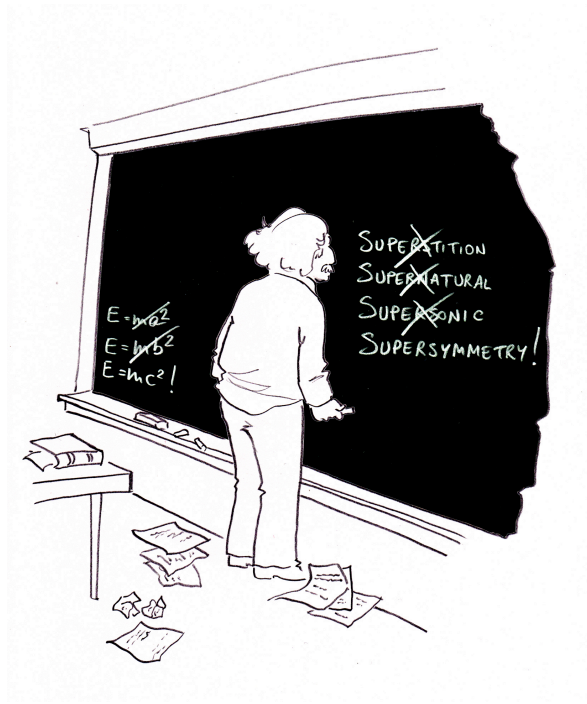 E=ma²
E=mb²
E=mc²!
SUPERSTITION
SUPERNATURAL
SUPERSONIC
SUPERSYMMETRY!